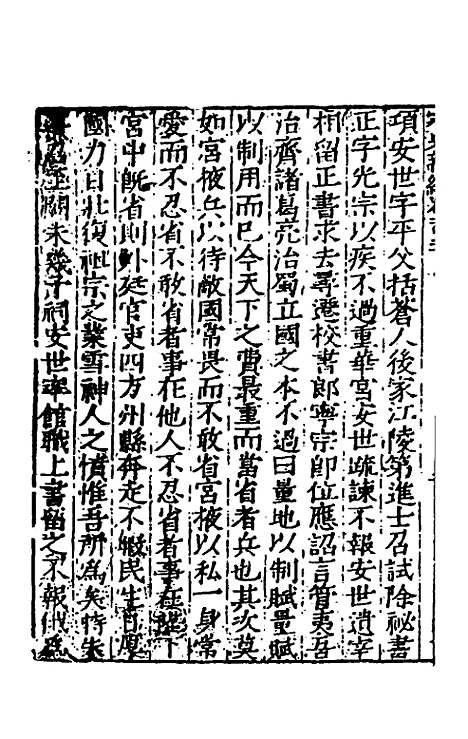 項安世字平父括蒼人後家江陵第進士召試除祕書
正字光宗以疾不過重華宮安世疏諫不報安世遺宰
相留正書求去尋遷校書郎寧宗即位應詔言管夷吾
治齊諸葛亮治蜀立國之本不過曰量地以制賦量賦
以制用而已今天下之費最重而當省者兵也其次莫
如宮掖兵以待敵國常畏而不敢省宮掖以私一身常
愛而不忍省不敢省者事在他人不忍省者事在陛下
宮中旣省則外廷官吏四方州縣奔走不暇民生自厚
國力日壯復祖宗之業雪神人之憤惟吾所為矣時朱
朱幾予祠安世率館職上書留之不報俄為